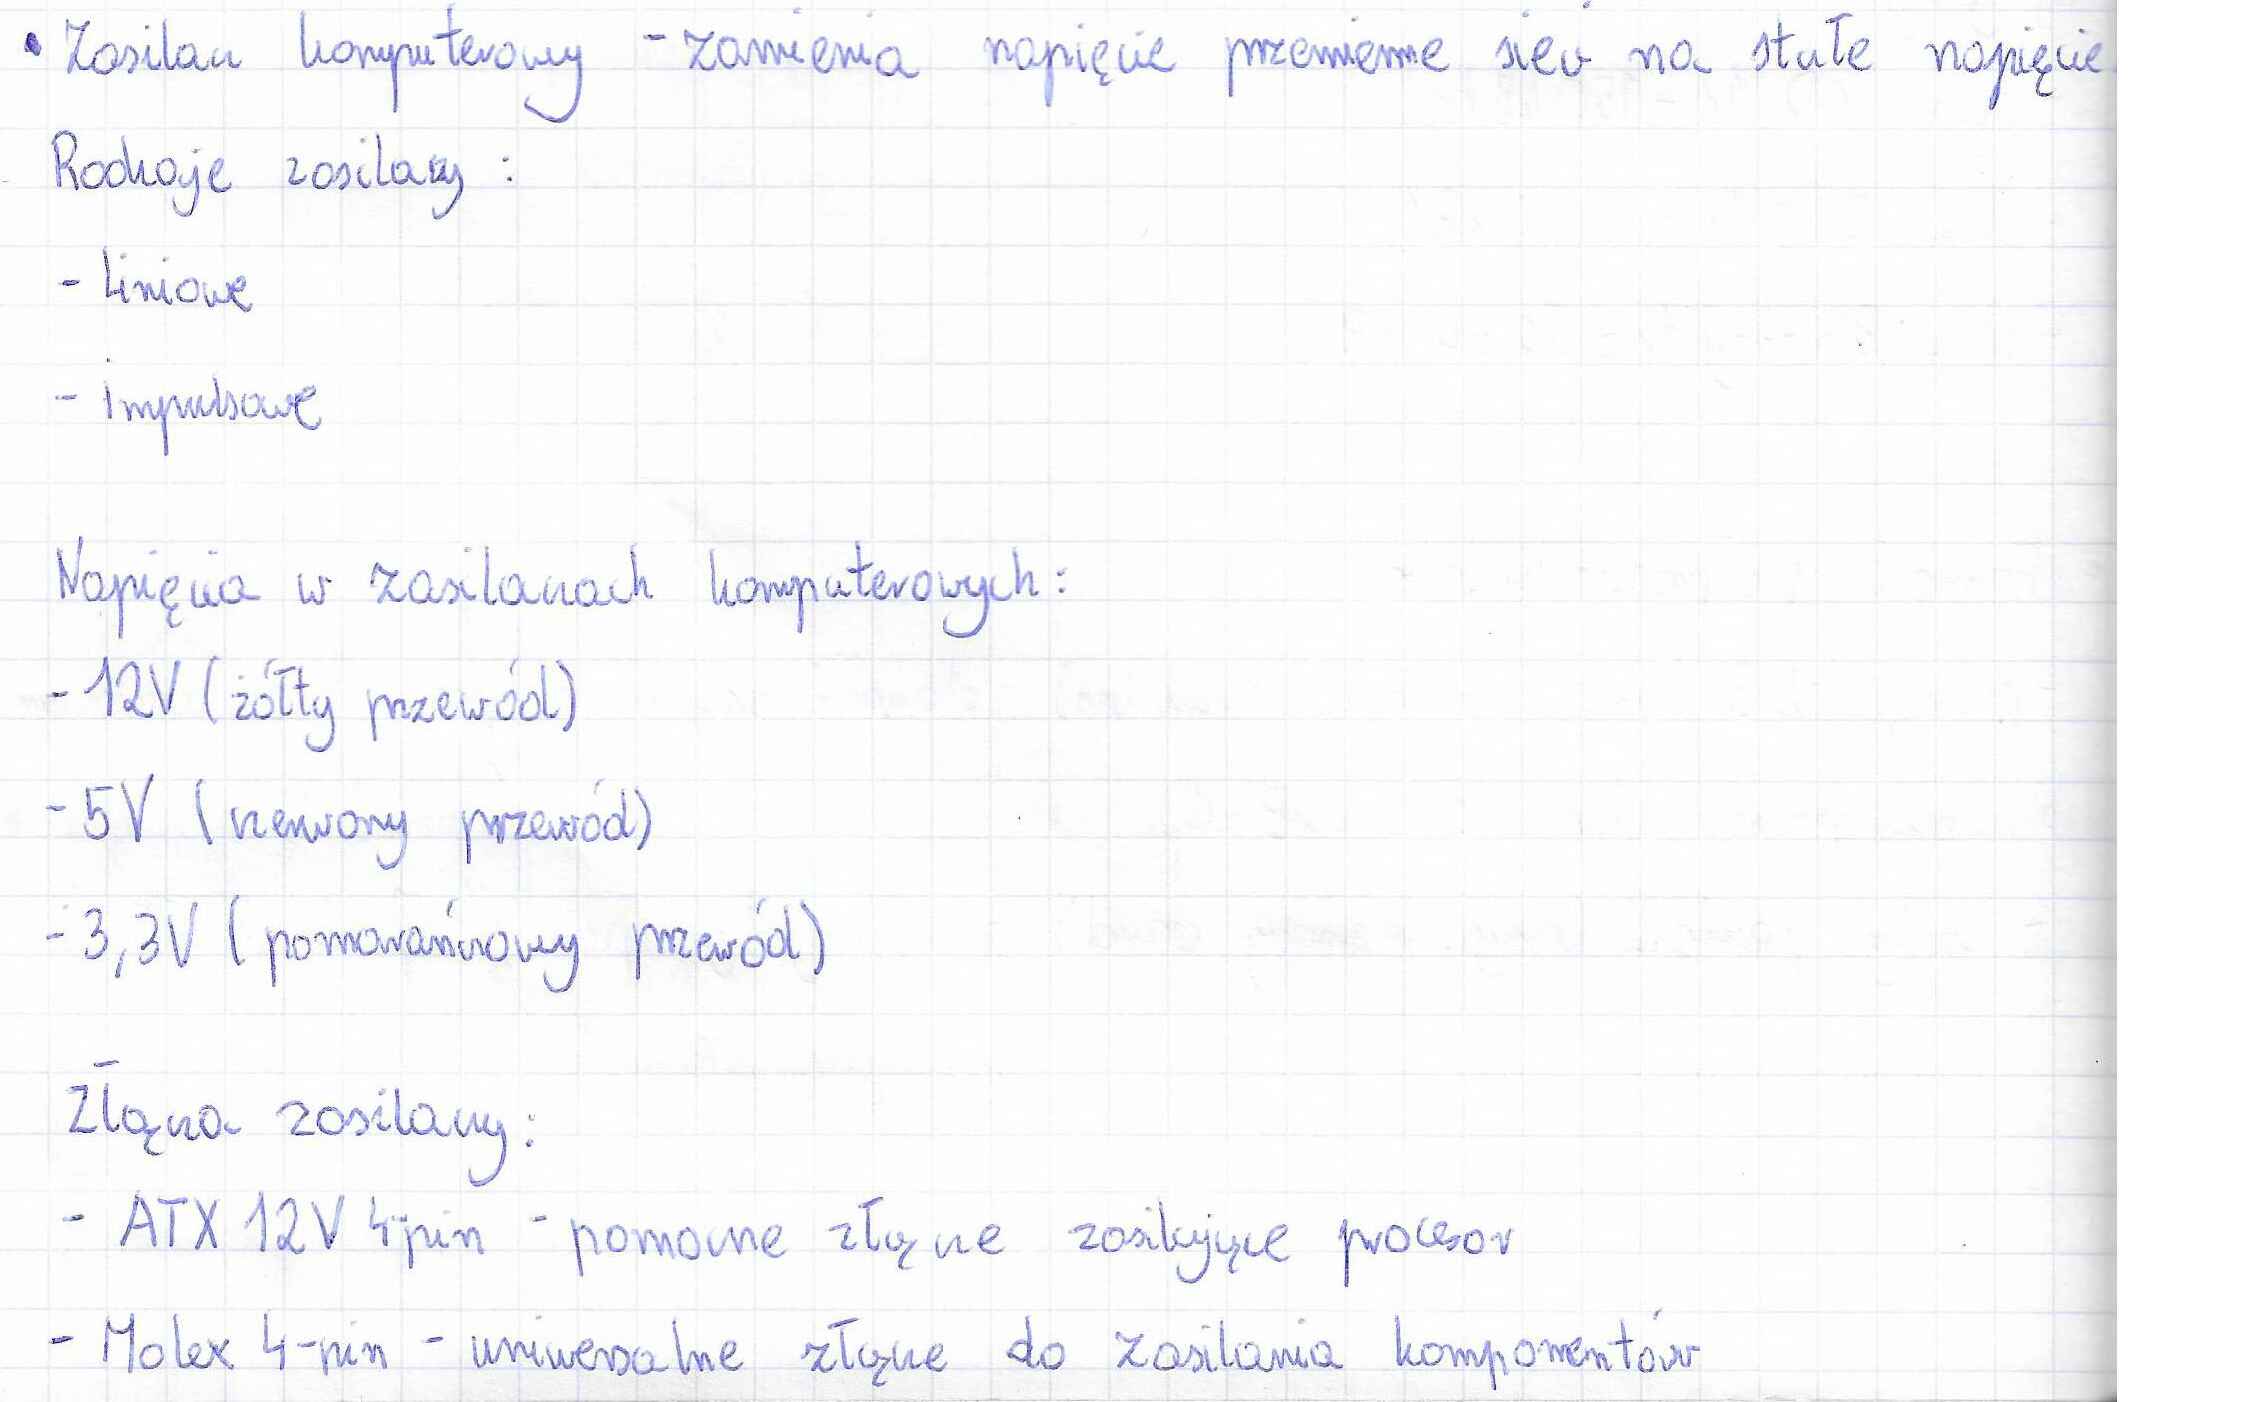 • Zasilacz komputerowy - zamienia napięcie przemienne sieci na stałe napięcie
Rodzaje zasilaczy :
- Liniowe
- Impulsowe
Napięcia w zasilaczach komputerowych:
- 12V (żółty przewód)
- 5V (czerwony przewód)
- 3,3V (pomarańczowy przewód)
Złącza zasilaczy:
- ATX 12V 4-pin - pomocne złącze zasilające procesor
- Molex 4-pin - uniwersalne złącze do zasilania komponentów